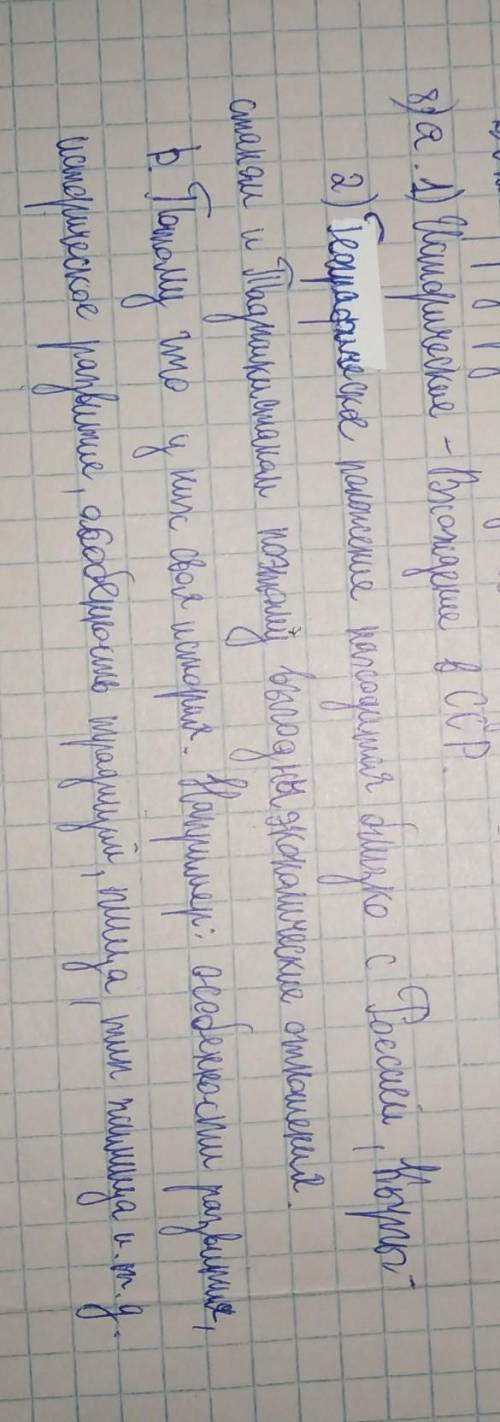 8) а. 1) Исторические - Вхождение в ССР.
2) Географическое положение находится близко с Россией, Кыргы-
станом и Таджикистаном поэтому выгодны экономические отношения.
b. Потому что у них своя история. Например: особенности развития,
историческое развитие, особенность традиций, пища, тип и.т.д.